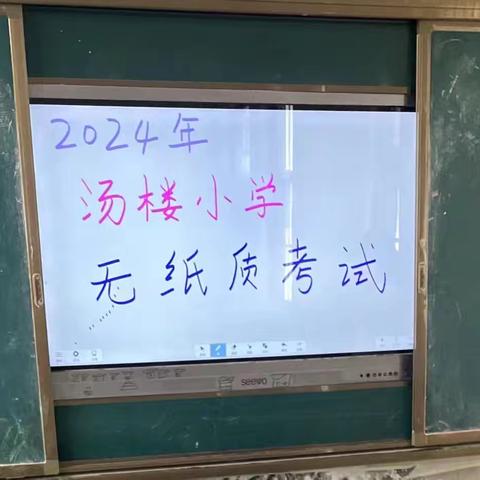 2024年
汤楼小学
无纸质考试
seewo